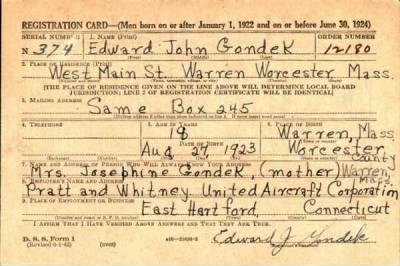 REGISTRATION CARD—(Men born on or after January 1, 1922 and on or before June 30, 1924)
SERIAL NUMBER 1. NAME (Print) ORDER NUMBER
N 374 Edward John Gondek 12180
2. PLACE OF RESIDENCE (Print)
West Main St. Warren Worcester Mass.
[THE PLACE OF RESIDENCE GIVEN ON THE LINE ABOVE WILL DETERMINE LOCAL BOARD
JURISDICTION; LINE 2 OF REGISTRATION CERTIFICATE WILL BE IDENTICAL]
3. MAILING ADDRESS
Same Box 245
4. TELEPHONE 5. AGE IN YEARS 6. PLACE OF BIRTH
18 Warren, Mass
DATE OF BIRTH
Aug 27 1923 Worcester County
7. NAME AND ADDRESS OF PERSON WHO WILL ALWAYS KNOW YOUR ADDRESS
Mrs. Josephine Gondek, (mother) Warren, Mass
8. EMPLOYER'S NAME AND ADDRESS
Pratt and Whitney United Aircraft Corporation
9. PLACE OF EMPLOYMENT OR BUSINESS
East Hartford, Connecticut
I AFFIRM THAT I HAVE VERIFIED ABOVE ANSWERS AND THAT THEY ARE TRUE.
D. S. S. Form 1
Edward J. Gondek